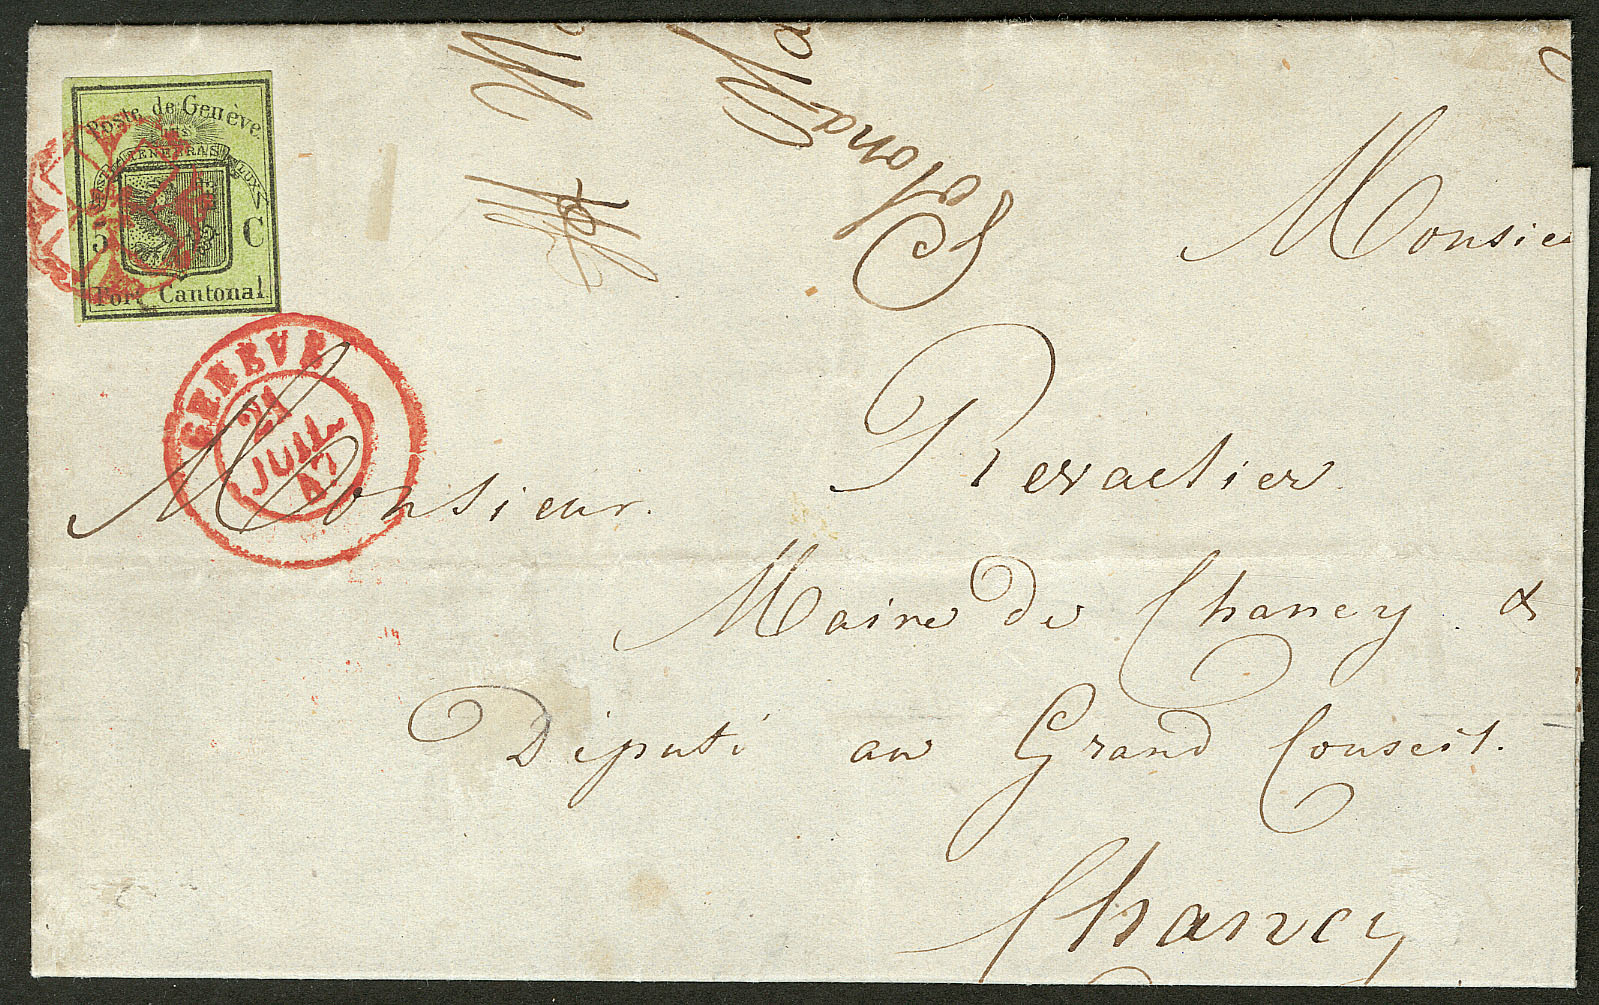 Poste de Genève
POST TENEBRAS LUX
5 C
Port Cantonal
GENEVE
21
JUIL
47
Monsie
Monsieur.
Revaclier
Maire de Chancy &
Députi au Grand Conseil.
Chancy